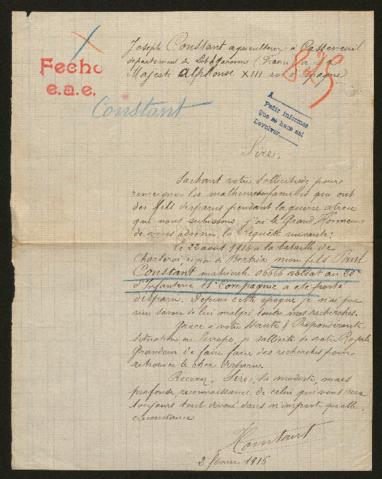 Joseph Constant agriculteur à Casseneuil
département de Lot & Garonne (France) à sa
Majesté Alphonse XIII roi d'Espagne
Fecho
e.a.e.
Constant
A
Pedir informes
que se hace así
Sire,
Sachant votre sollicitude pour
renseigner les malheureuses familles qui ont
des fils disparus pendant la guerre atroce
que nous subissons j'ai le Grand Honneur
de vous adresser la requête suivante:
Le 22 août 1914 à la bataille de
Charleroi, mon fils Paul
Constant matricule soldat au 20e
d'Infanterie 11e Compagnie a été porté
disparu. Depuis cette époque je n'ai pu
rien savoir de lui malgré toutes mes recherches.
Grâce à votre Bonté &
situation en Europe, je sollicite de votre Royale
Grandeur de faire faire des recherches pour
retrouver le cher Disparu.
Recevez, Sire, la modeste, mais
profonde reconnaissance de celui qui vous sera
toujours tout dévoué dans n'importe quelle
circonstance
Constant
2 février 1916